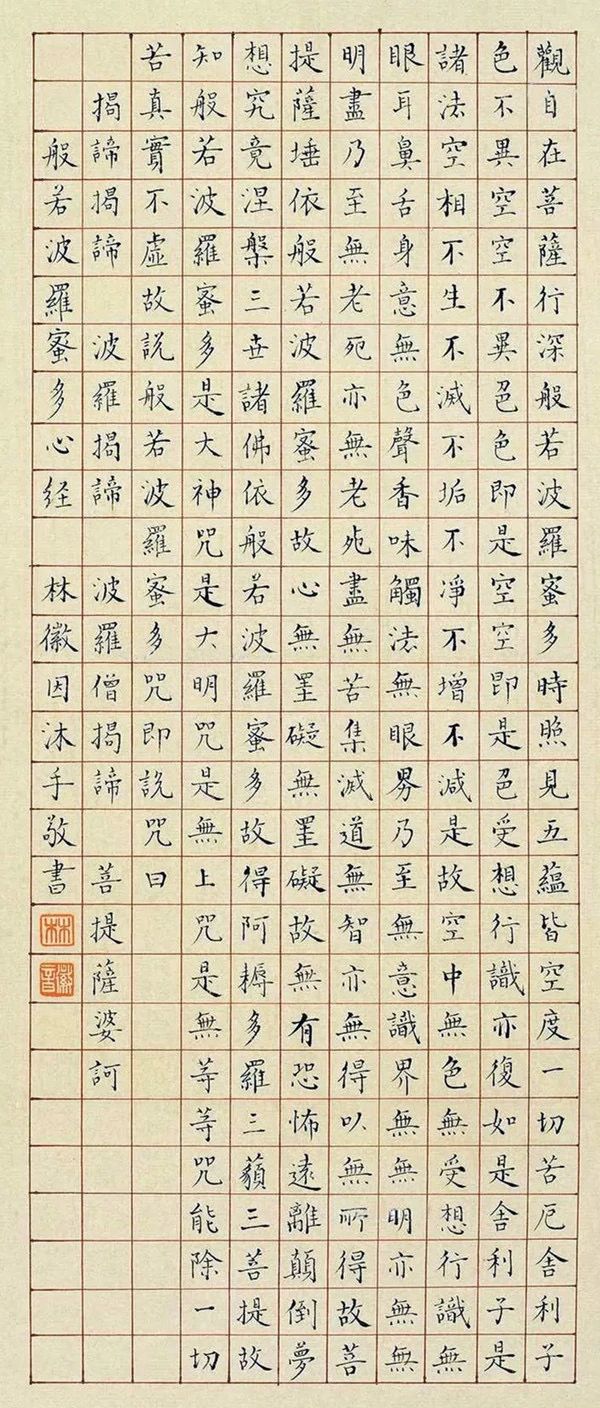 觀自在菩薩行深般若波羅蜜多時照見五蘊皆空度一切苦厄舍利子
色不異空空不異色色即是空空即是色受想行識亦復如是舍利子是
諸法空相不生不滅不垢不淨不增不減是故空中無色無受想行識無
眼耳鼻舌身意無色聲香味觸法無眼界乃至無意識界無無明亦無無
明盡乃至無老死亦無老死盡無苦集滅道無智亦無得以無所得故菩
提薩埵依般若波羅蜜多故心無罣礙無罣礙故無有恐怖遠離顛倒夢
想究竟涅槃三世諸佛依般若波羅蜜多故得阿耨多羅三藐三菩提故
知般若波羅蜜多是大神咒是大明咒是無上咒是無等等咒能除一切
苦真實不虛故說般若波羅蜜多咒即說咒曰
揭諦揭諦 波羅揭諦 波羅僧揭諦 菩提薩婆訶
般若波羅蜜多心経 林徽因沐手敬書
林
徽音